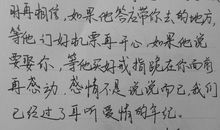 明再相信，如果他答应带你去的地方，
等他订好机票再开心，如果他说
要娶你，等他买好戒指跪在你面前
再感动，感情不是说说而已，我们
已经过了耳听爱情的年纪。